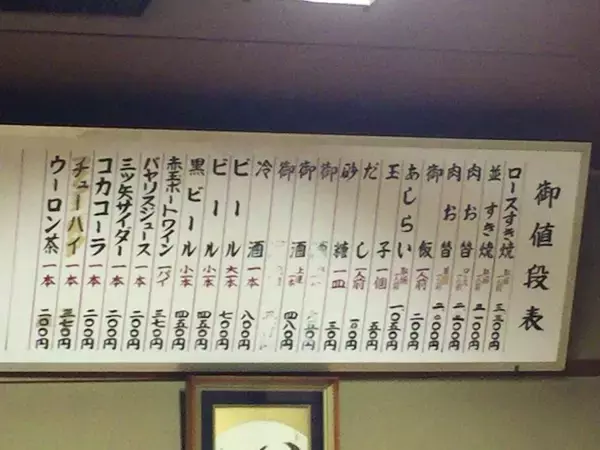 御値段表
ロースすき焼 一人前 三、三〇〇円
並すき焼 一人前 三、一〇〇円
肉お替 ロース 一人前 二、二〇〇円
肉お替 一人前 二、〇〇〇円
御飯 一人前 二〇〇円
あしらい 一人前 一、〇五〇円
玉子 一個 五〇円
だし 一人前 一〇〇円
砂糖 一皿 五〇円
御
御酒 上運 一本 四八〇円
御
冷酒 一本
ビール 大一本 八〇〇円
ビール 小一本 七〇〇円
黒ビール 小一本 四五〇円
赤玉ポートワイン 一パイ 四五〇円
バヤリスジュース 一本 三七〇円
三ツ矢サイダー 一本 二〇〇円
コカコーラ 一本 二〇〇円
チューハイ 一本 三七〇円
ウーロン茶 一本 二〇〇円